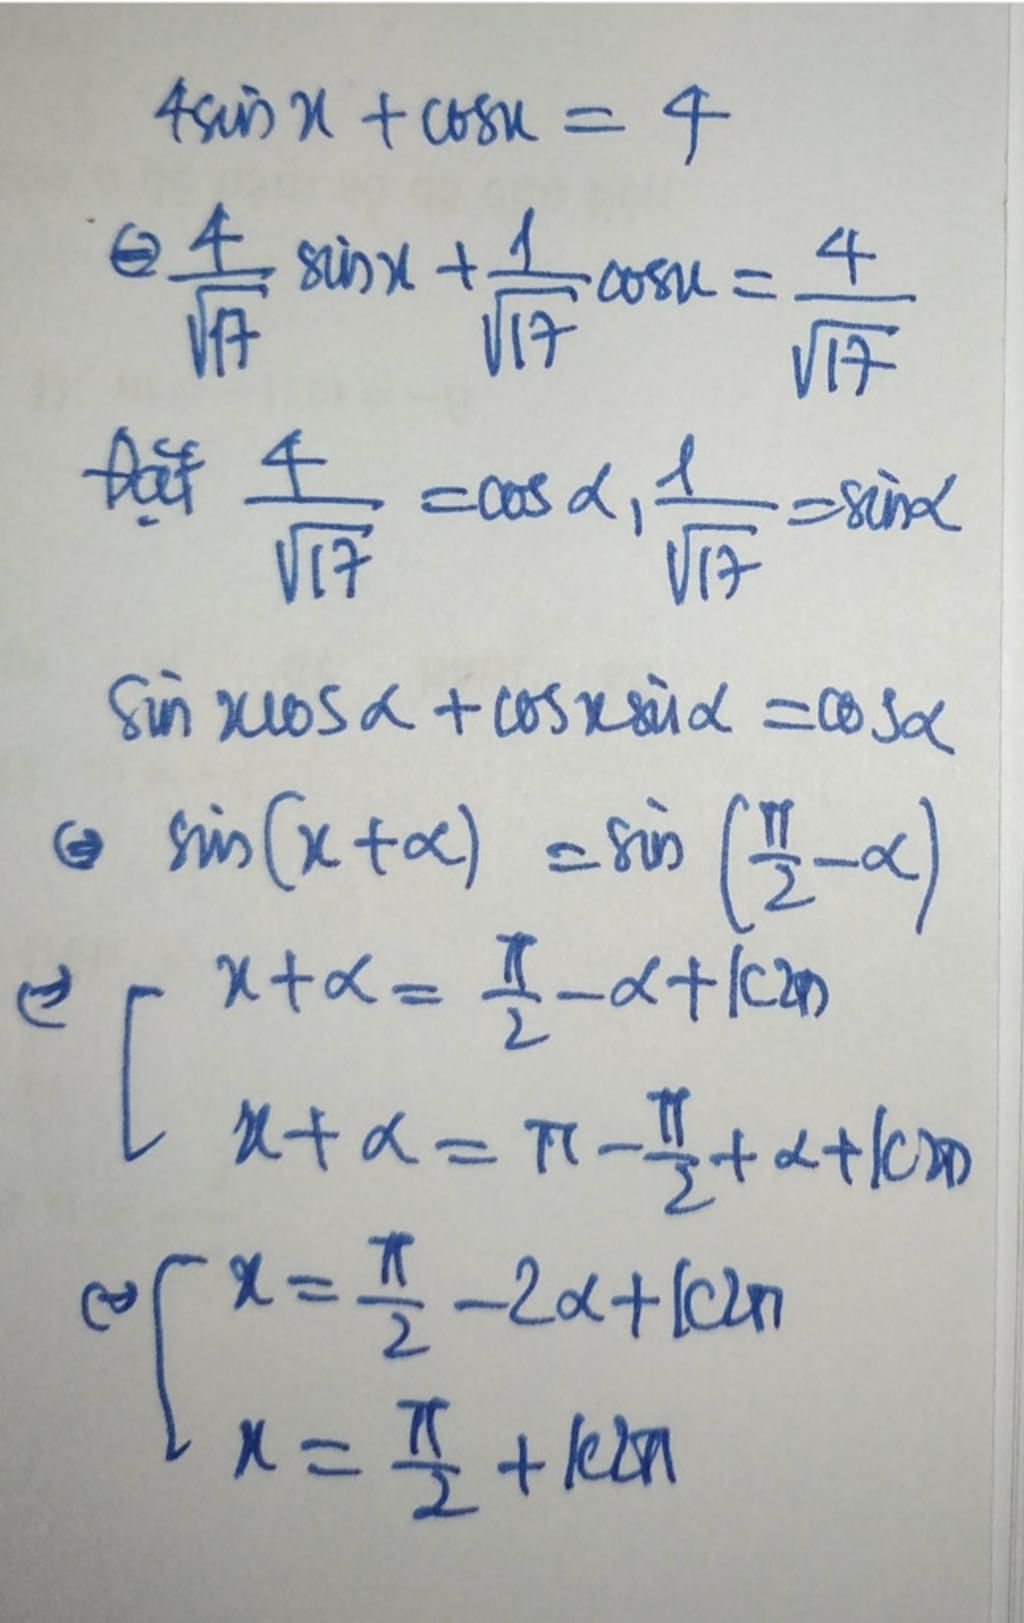 4sin x + cosx = 4
⇔ 4/√17 sinx + 1/√17 cosx = 4/√17
Đặt 4/√17 = cos α, 1/√17 = sinα
sin x cos α + cos x sin α = cos α
⇔ sin(x + α) = sin (π/2 - α)
⇔ [ x + α = π/2 - α + k2π
x + α = π - π/2 + α + k2π
⇔ [ x = π/2 - 2α + k2π
x = π/2 + k2π